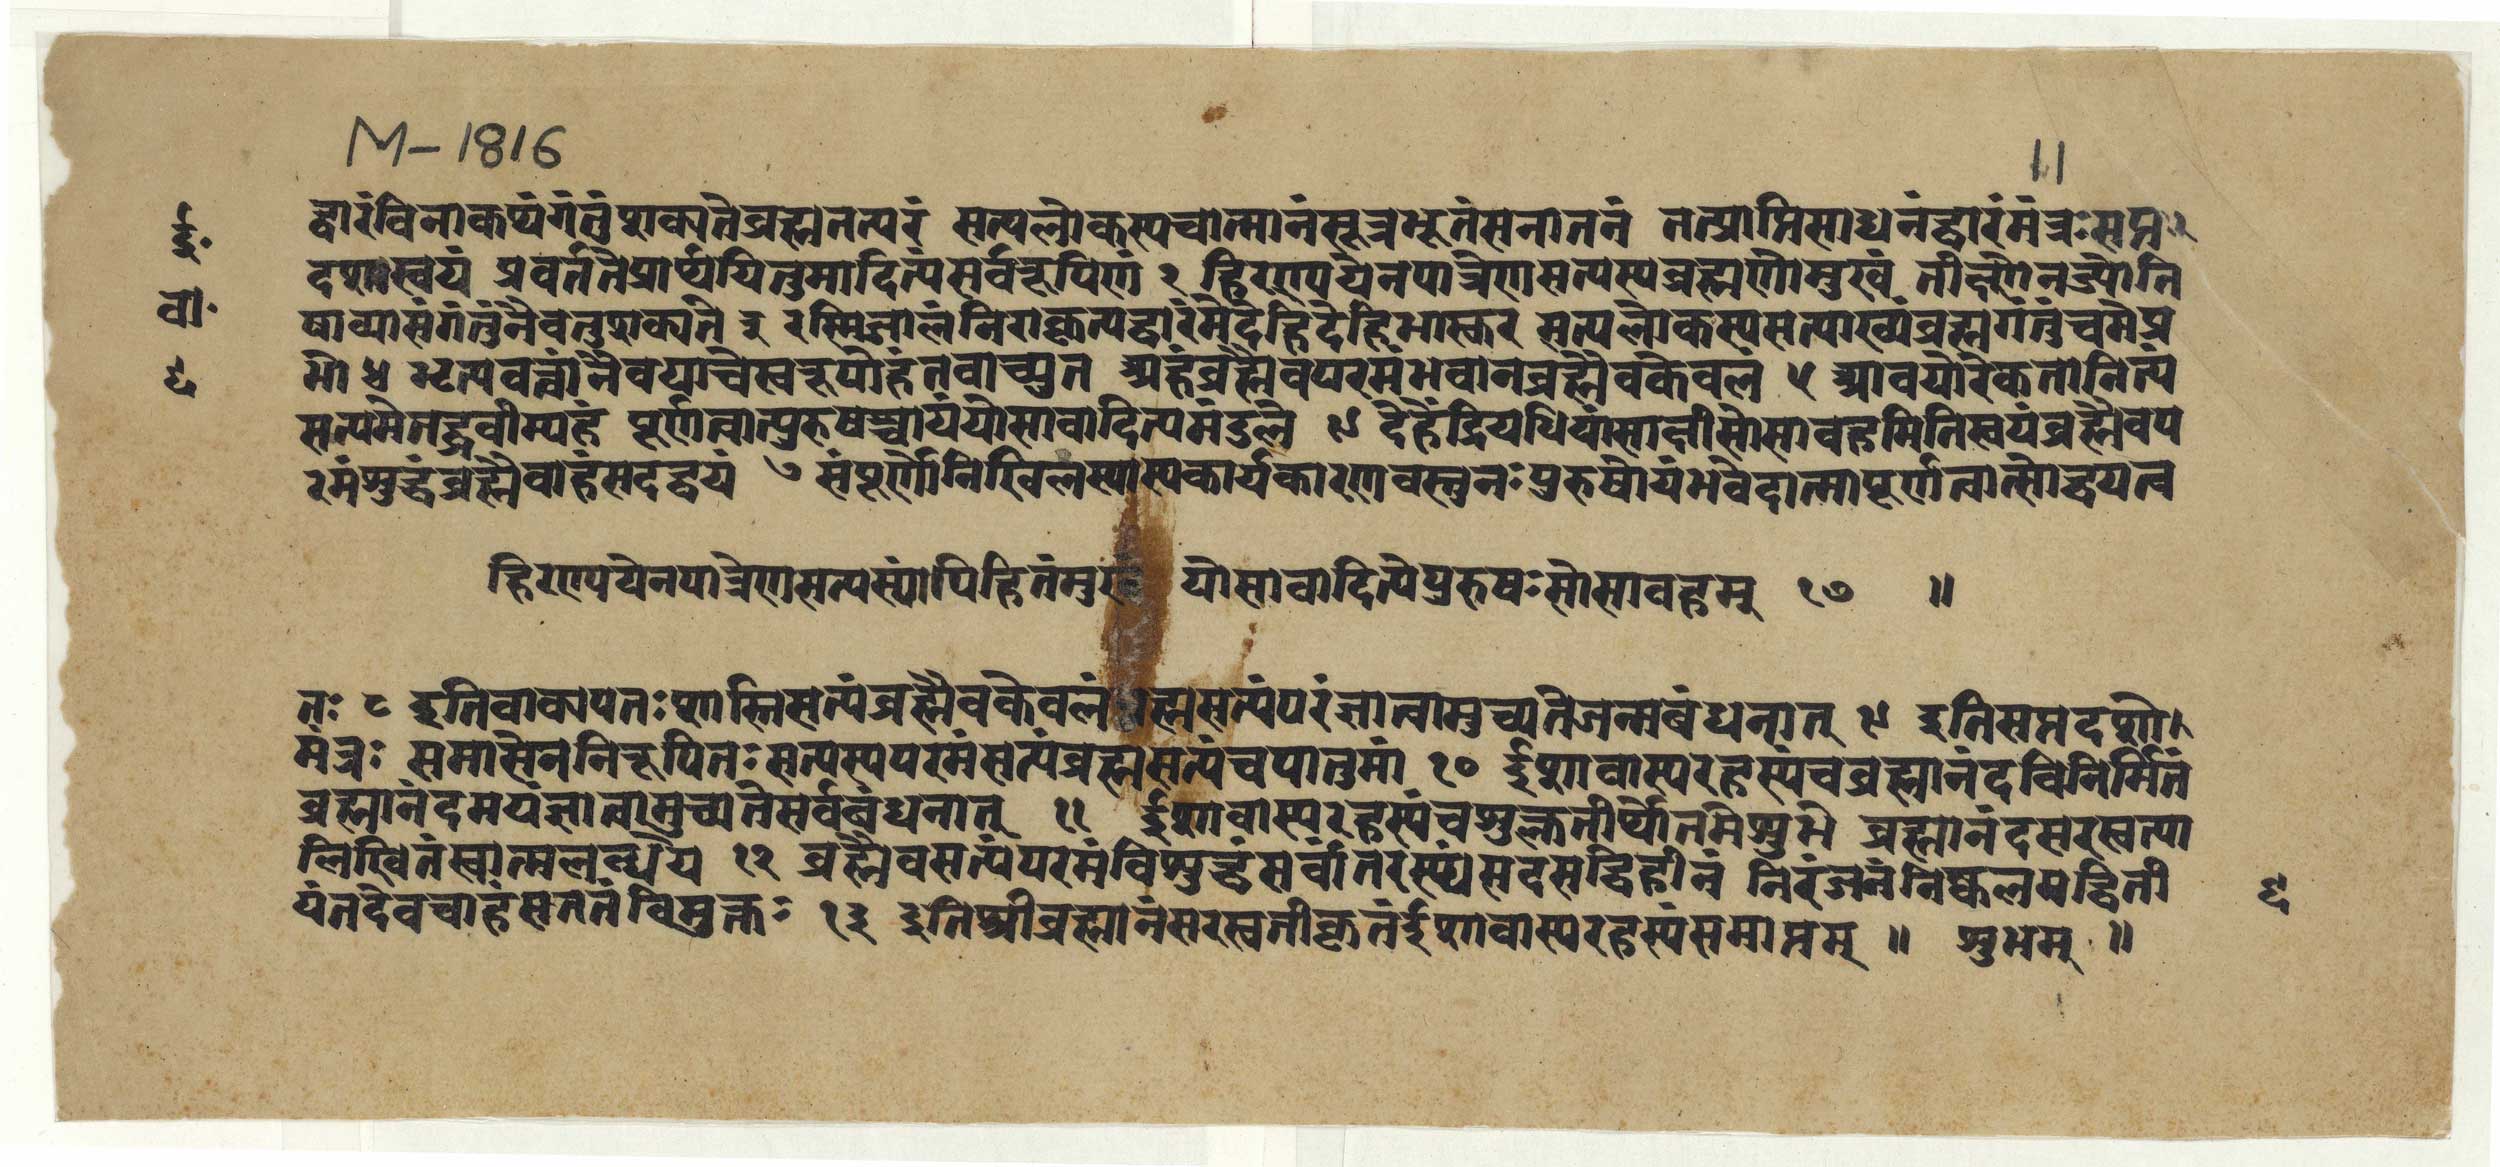 M-1816
11
ई॰
वा॰
९
द्वारंविनाकथंगंतुंशक्यतेब्रह्मतत्परं सत्यलोकस्यचात्मानंसूत्रभूतंसनातनं तत्प्राप्तिसाधनंद्वारंमंत्रःसप्त
दशस्वयं प्रवर्ततेप्रार्थयितुमादित्यंसर्वरूपिणं २ हिरण्मयेनपात्रेणसत्यस्यब्रह्मणोमुखं तीक्ष्णेनज्योति
षाव्याप्तंगंतुंनैवतुशक्यते ३ रस्मिजालंनिराकृत्यद्वारंमेदेहिदेहिभास्कर सत्यलोकस्यसत्याख्यंब्रह्मगंतुंचमेप्र
भो ४ भृत्यवत्त्वांनैवयाचेस्वरूपोहंतवाच्युत अहंब्रह्मैवपरमंभवान्ब्रह्मैवकेवलं ५ आवयोरेकतानित्यं
सत्यमेतद्ब्रवीम्यहं पूर्णत्वात्पुरुषश्चायंयोसावादित्यमंडले ६ देहेंद्रियधियांसाक्षीसोसावहमितिस्वयंब्रह्मैवप
रमंशुद्धंब्रह्मैवाहंसदद्वयं ७ संपूर्णोनिखिलस्यास्यकार्यकारणवस्तुनःपुरुषोयंभवेदात्मापूर्णत्वात्सोद्वयत्व
हिरण्मयेनपात्रेणसत्यस्यापिहितंमुखं योसावादित्येपुरुषःसोसावहम् १७ ॥
तः ८ इतिवाक्यपतःशास्तिसत्यंब्रह्मैवकेवलं ब्रह्मसत्यंपरंज्ञात्वामुच्यतेजन्मबंधनात् ९ इतिसप्तदशो
मंत्रः समासेननिरूपितःसत्यस्यपरमंसत्यंब्रह्मसत्यंचपातुमां १० ईशावास्यरहस्यंचब्रह्मानंदविनिर्मितं
ब्रह्मानंदमयंज्ञात्वामुच्यतेसर्वबंधनात् ११ ईशावास्यरहस्यंचशुक्लतीर्थोत्तमेशुभे ब्रह्मानंदसरस्वत्या
लिखितंस्वात्मलब्धये १२ ब्रह्मैवसत्यंपरमंविशुद्धंसर्वांतरस्थंसदसद्विहीनं निरंजनंनिष्कलमद्विती
यंतदेवचाहंसततंविमुक्तः १३ इतिश्रीब्रह्मानंसरस्वतीकृतंईशावास्यरहस्यंसमाप्तम् ॥ शुभम् ॥
९